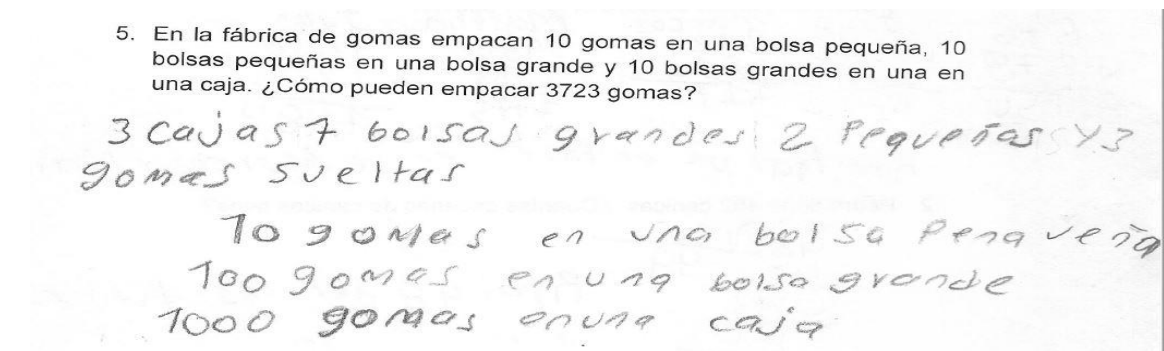 5. En la fábrica de gomas empacan 10 gomas en una bolsa pequeña, 10
bolsas pequeñas en una bolsa grande y 10 bolsas grandes en una en
una caja. ¿Cómo pueden empacar 3723 gomas?
3 cajas 7 bolsas grandes 2 Pequeñas y 3
gomas sueltas
10 gomas en una bolsa Penaveña
100 gomas en una bolsa grande
1000 gomas en una caja